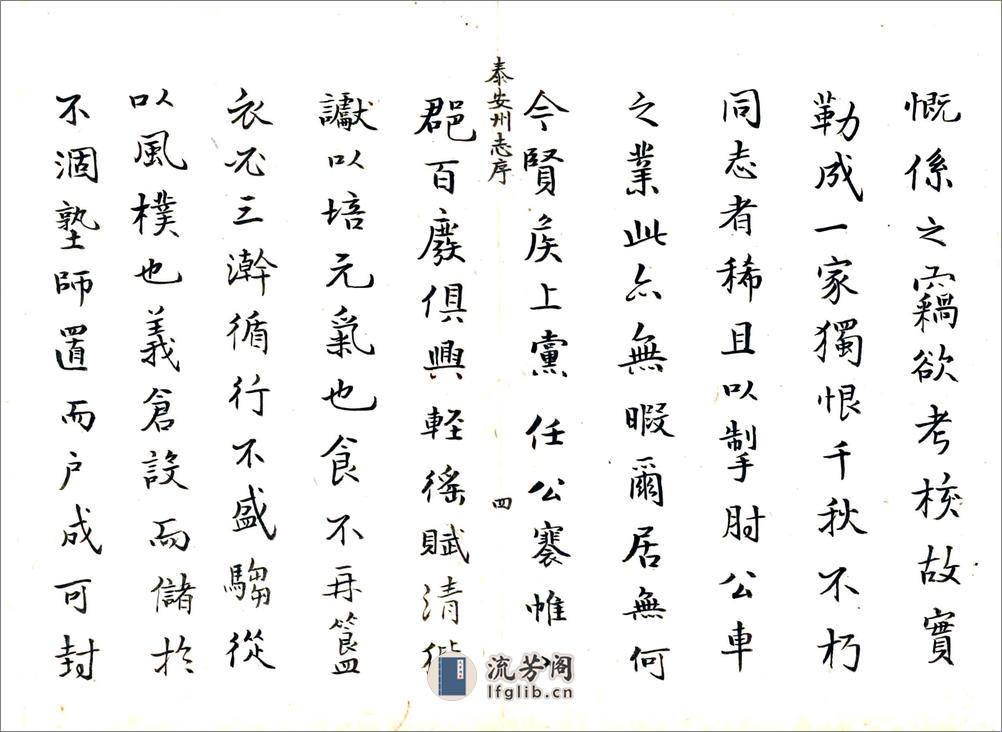 慨係之竊欲考核故實
勒成一家獨恨千秋不朽
同志者稀且以掣肘公車
之業此亦無暇爾居無何
今賢侯上黨 任公褰帷
泰安州志序
四
郡百廢俱興輕徭賦清獄
讞以培元氣也食不再簋
衣必三澣循行不盛騶從
以風樸也義倉設而儲於
不涸塾師置而户成可封
流芳阁
lfglib.cn